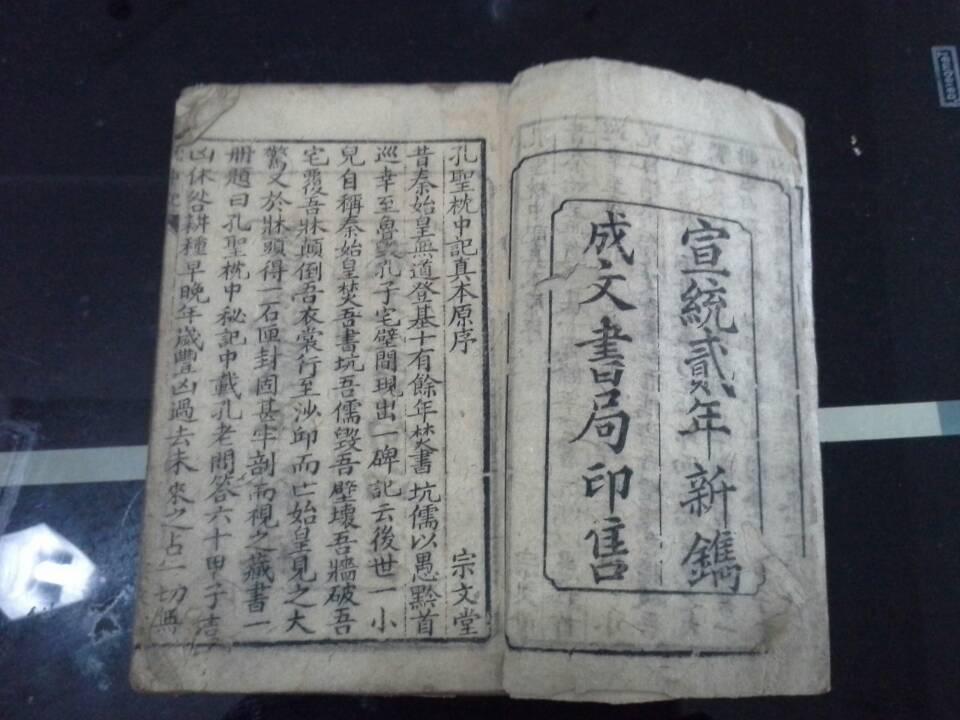 宣統貳年新鐫
成文書局印售
孔聖枕中記真本原序 宗文堂
昔秦始皇無道登基十有餘年焚書坑儒以愚黔首
巡幸至魯毀孔子宅壁間現出一碑記云後世一小
兒自稱秦始皇焚吾書坑吾儒毀吾壁壞吾牆破吾
宅覆吾牀顛倒吾衣裳行至沙邱而亡始皇見之大
驚又於牀頭得一石匣封固甚牢剖而視之藏書一
册題曰孔聖枕中秘記中載孔老問答六十甲子吉
凶休咎耕種早晚年歲豐凶過去未來之占一切無